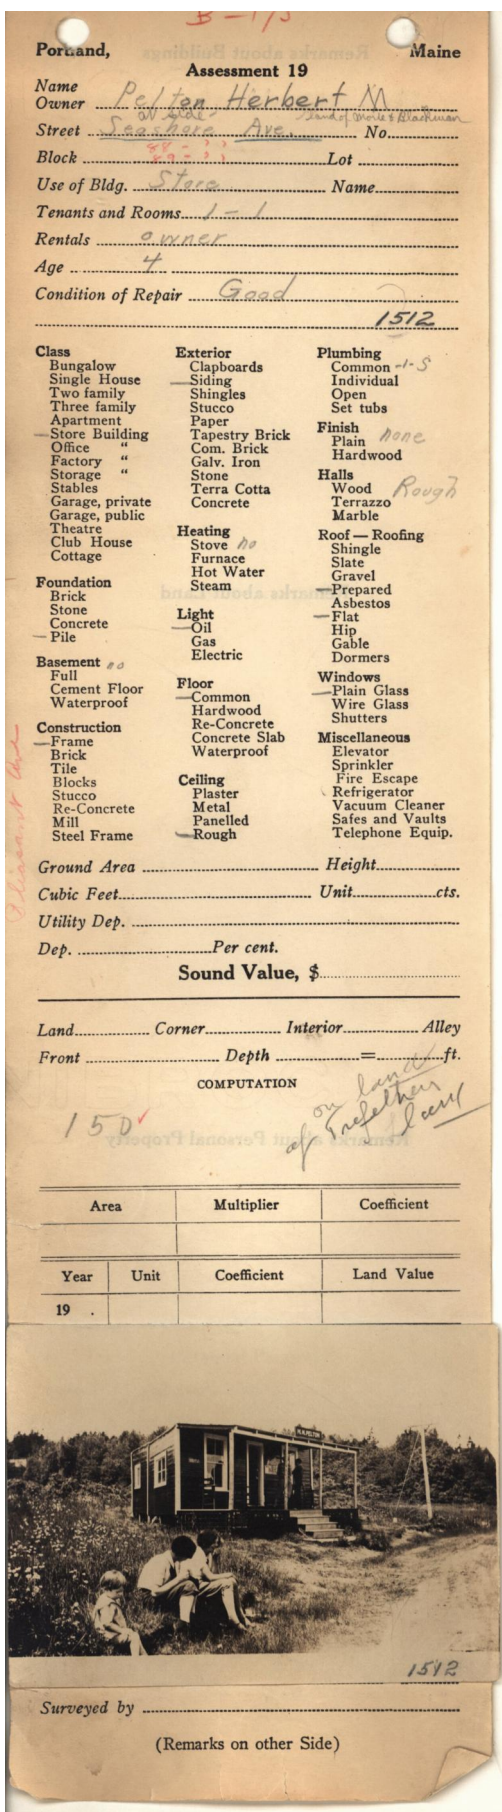 B-175
Portland, Maine
Assessment 19
Name
Owner Pelton Herbert M
Street Seashore Ave. No.
land of Morse & Blackman
88-
89-
Block Lot
Use of Bldg. Store Name
Tenants and Rooms 1-1
Rentals owner
Age 4
Condition of Repair Good
1512
Class
Bungalow
Single House
Two family
Three family
Apartment
Store Building
Office "
Factory "
Storage "
Stables
Garage, private
Garage, public
Theatre
Club House
Cottage
Foundation
Brick
Stone
Concrete
Pile
Basement no
Full
Cement Floor
Waterproof
Construction
Frame
Brick
Tile
Blocks
Stucco
Re-Concrete
Mill
Steel Frame
Exterior
Clapboards
Siding
Shingles
Stucco
Paper
Tapestry Brick
Com. Brick
Galv. Iron
Stone
Terra Cotta
Concrete
Heating
Stove no
Furnace
Hot Water
Steam
Light
Oil
Gas
Electric
Floor
Common
Hardwood
Re-Concrete
Concrete Slab
Waterproof
Ceiling
Plaster
Metal
Panelled
Rough
Plumbing
Common -1-S
Individual
Open
Set tubs
Finish
Plain none
Hardwood
Halls
Wood Rough
Terrazzo
Marble
Roof — Roofing
Shingle
Slate
Gravel
Prepared
Asbestos
Flat
Hip
Gable
Dormers
Windows
Plain Glass
Wire Glass
Shutters
Miscellaneous
Elevator
Sprinkler
Fire Escape
Refrigerator
Vacuum Cleaner
Safes and Vaults
Telephone Equip.
Pleasant Ave
Ground Area Height
Cubic Feet Unit cts.
Utility Dep.
Dep. Per cent.
Sound Value, $
Land Corner Interior Alley
Front Depth = ft.
COMPUTATION
on land
of Trefethen
150
Area Multiplier Coefficient
Year Unit Coefficient Land Value
19 .
H.M. PELTON
1512
Surveyed by
(Remarks on other Side)